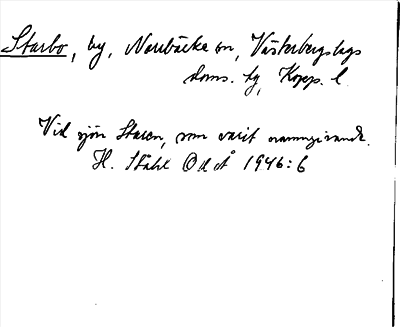 Starbo, by, Norrbärke sn, Västerbergslags
doms. hg, Kopp. l.
Vid sjön Staren, som varit namngivande.
H. Ståhl Od å 1946:6